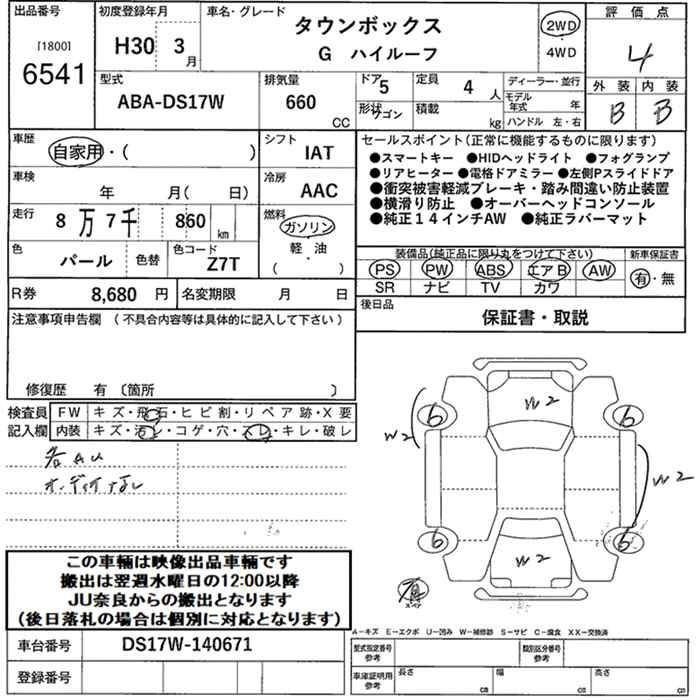 出品番号
[1800]
6541
初度登録年月
H30 3 月
車名・グレード
タウンボックス
G ハイルーフ
2WD
・
4WD
評価点
4
外装 内装
B B
型式
ABA-DS17W
排気量
660
CC
ドア
5
形状
ワゴン
定員
4 人
積載
kg
ディーラー・並行
モデル年式 年
ハンドル 左・右
車歴
自家用・( )
シフト
IAT
車検
年 月( 日)
冷房
AAC
走行
8 万 7 千 860 km
燃料
ガソリン
軽・油
( )
色
パール
色替
色コード
Z7T
R券 8,680 円
名変期限 月 日
セールスポイント(正常に機能するものに限ります)
●スマートキー ●HIDヘッドライト ●フォグランプ
●リアヒーター ●電格ドアミラー ●左側Pスライドドア
●衝突被害軽減ブレーキ・踏み間違い防止装置
●横滑り防止 ●オーバーヘッドコンソール
●純正14インチAW ●純正ラバーマット
装備品(純正品に限り丸をつけて下さい)
PS PW ABS エアB AW
SR ナビ TV カワ
新車保証書
有・無
後日品
保証書・取説
注意事項申告欄 (不具合内容等は具体的に記入して下さい)
修復歴 有 〔箇所 〕
検査員
記入欄
FW キズ・飛石・ヒビ割・リペア跡・X要
内装 キズ・汚レ・コゲ・穴・スレ・キレ・破レ
各AU
オーディオなし
W2
6 6
W2
W2
6 6
W2
スペア
この車輌は映像出品車輌です
搬出は翌週水曜日の12:00以降
JU奈良からの搬出となります
(後日落札の場合は個別に対応となります)
車台番号 DS17W-140671
登録番号
A-キズ E-エクボ U-凹み W-補修跡 S-サビ C-腐食 XX-交換済
型式指定番号
参考
類別区分番号
参考
車庫証明用
参考
長さ cm
幅 cm
高さ cm